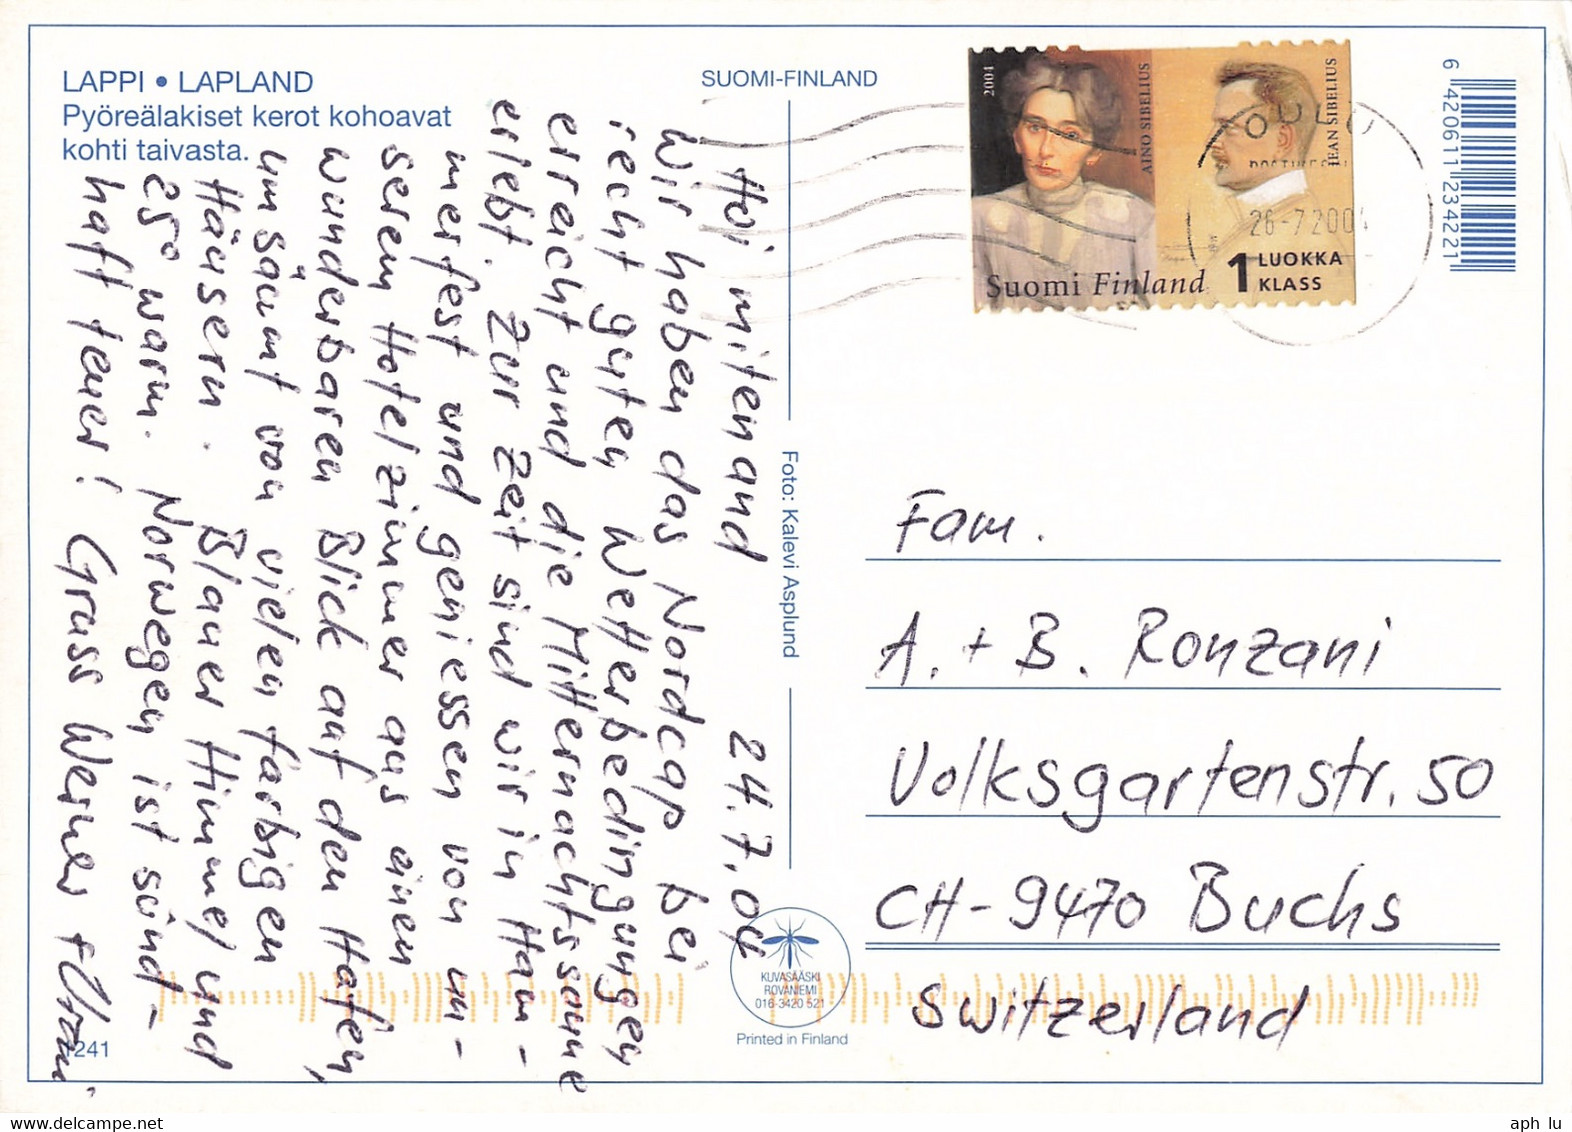 LAPPI • LAPLAND
Pyöreälakiset kerot kohoavat
kohti taivasta.
SUOMI-FINLAND
Hoi mitenand 24.7.04
Wir haben das Nordcap bei
recht guten Wetterbedingungen
erreicht und die Mitternachtssonne
erlebt. Zur Zeit sind wir in Ham-
merfest und geniessen von un-
serem Hotelzimmer aus einen
wunderbaren Blick auf den Hafen,
umsäumt von vielen farbigen
Häusern. Blauer Himmel und
25° warm. Norwegen ist sünd-
haft teuer! Gruss Werner +
Foto: Kalevi Asplund
2004
AINO SIBELIUS
JEAN SIBELIUS
Suomi Finland
1 LUOKKA
KLASS
OULU
26-7.200
6 420611 234221
Fam.
A. + B. Ronzani
Volksgartenstr. 50
CH-9470 Buchs
Switzerland
KUVASÄÄSKI
ROVANIEMI
016-3420 521
Printed in Finland
1241
aph lu